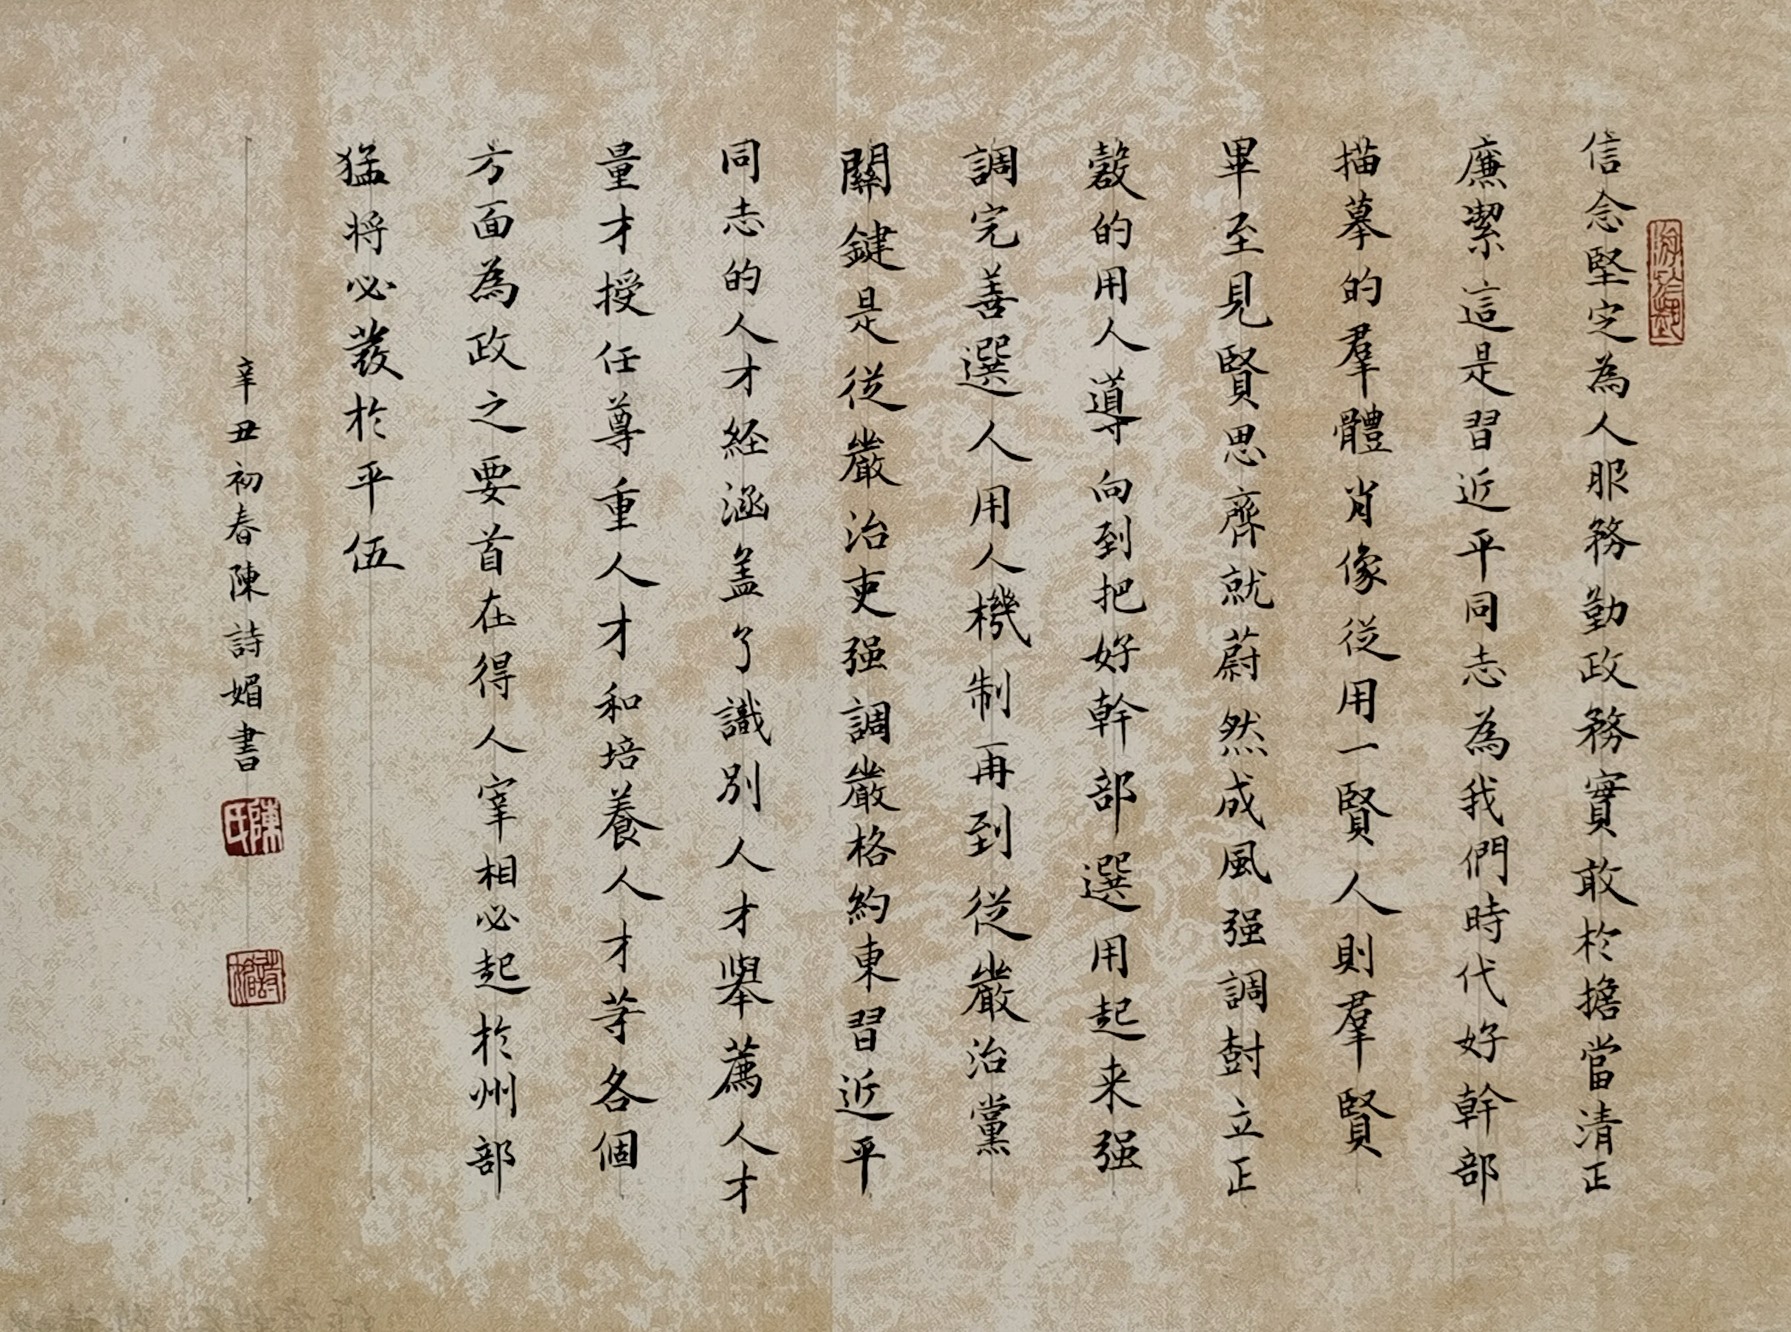 信念堅定為人服務勤政務實敢於擔當清正
廉潔這是習近平同志為我們時代好幹部
描摹的羣體肖像從用一賢人則羣賢
畢至見賢思齊就蔚然成風强調封立正
穀的用人導向到把好幹部選用起来强
調完善選人用人機制再到從嚴治黨
關鍵是從嚴治吏强調嚴格約東習近平
同志的人才經涵盖了識別人才舉薦人才
量才授任尊重人才和培養人才等各個
方面為政之要首在得人宰相必起於州部
猛将必發於平伍
辛丑初春陳詩媚書
陳氏